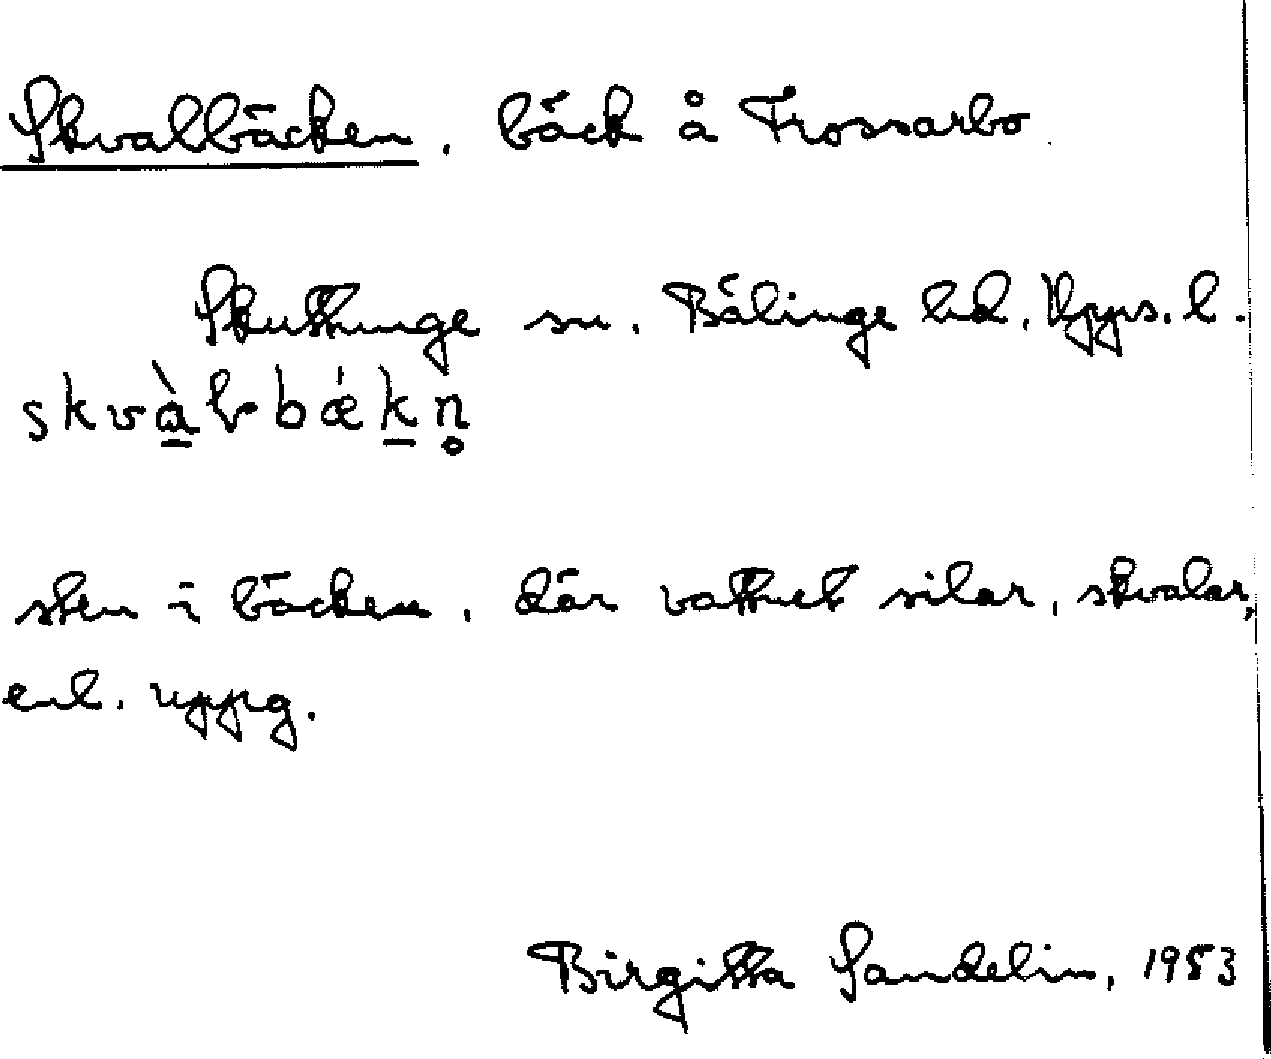 Skvalbäcken, bäck å Trossarbo
Skuttunge sn. Bälinge hd. Upps. l.
skvàlbǽkn̥
sten i bäcken, där vattnet silar, skvalar,
enl. uppg.
Birgitta Sandelin, 1953